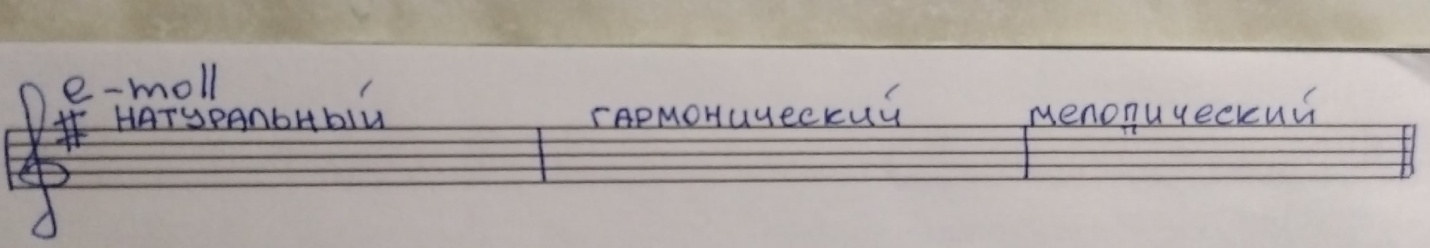 e-moll
НАТУРАЛЬНЫЙ ГАРМОНИЧЕСКИЙ МЕЛОДИЧЕСКИЙ